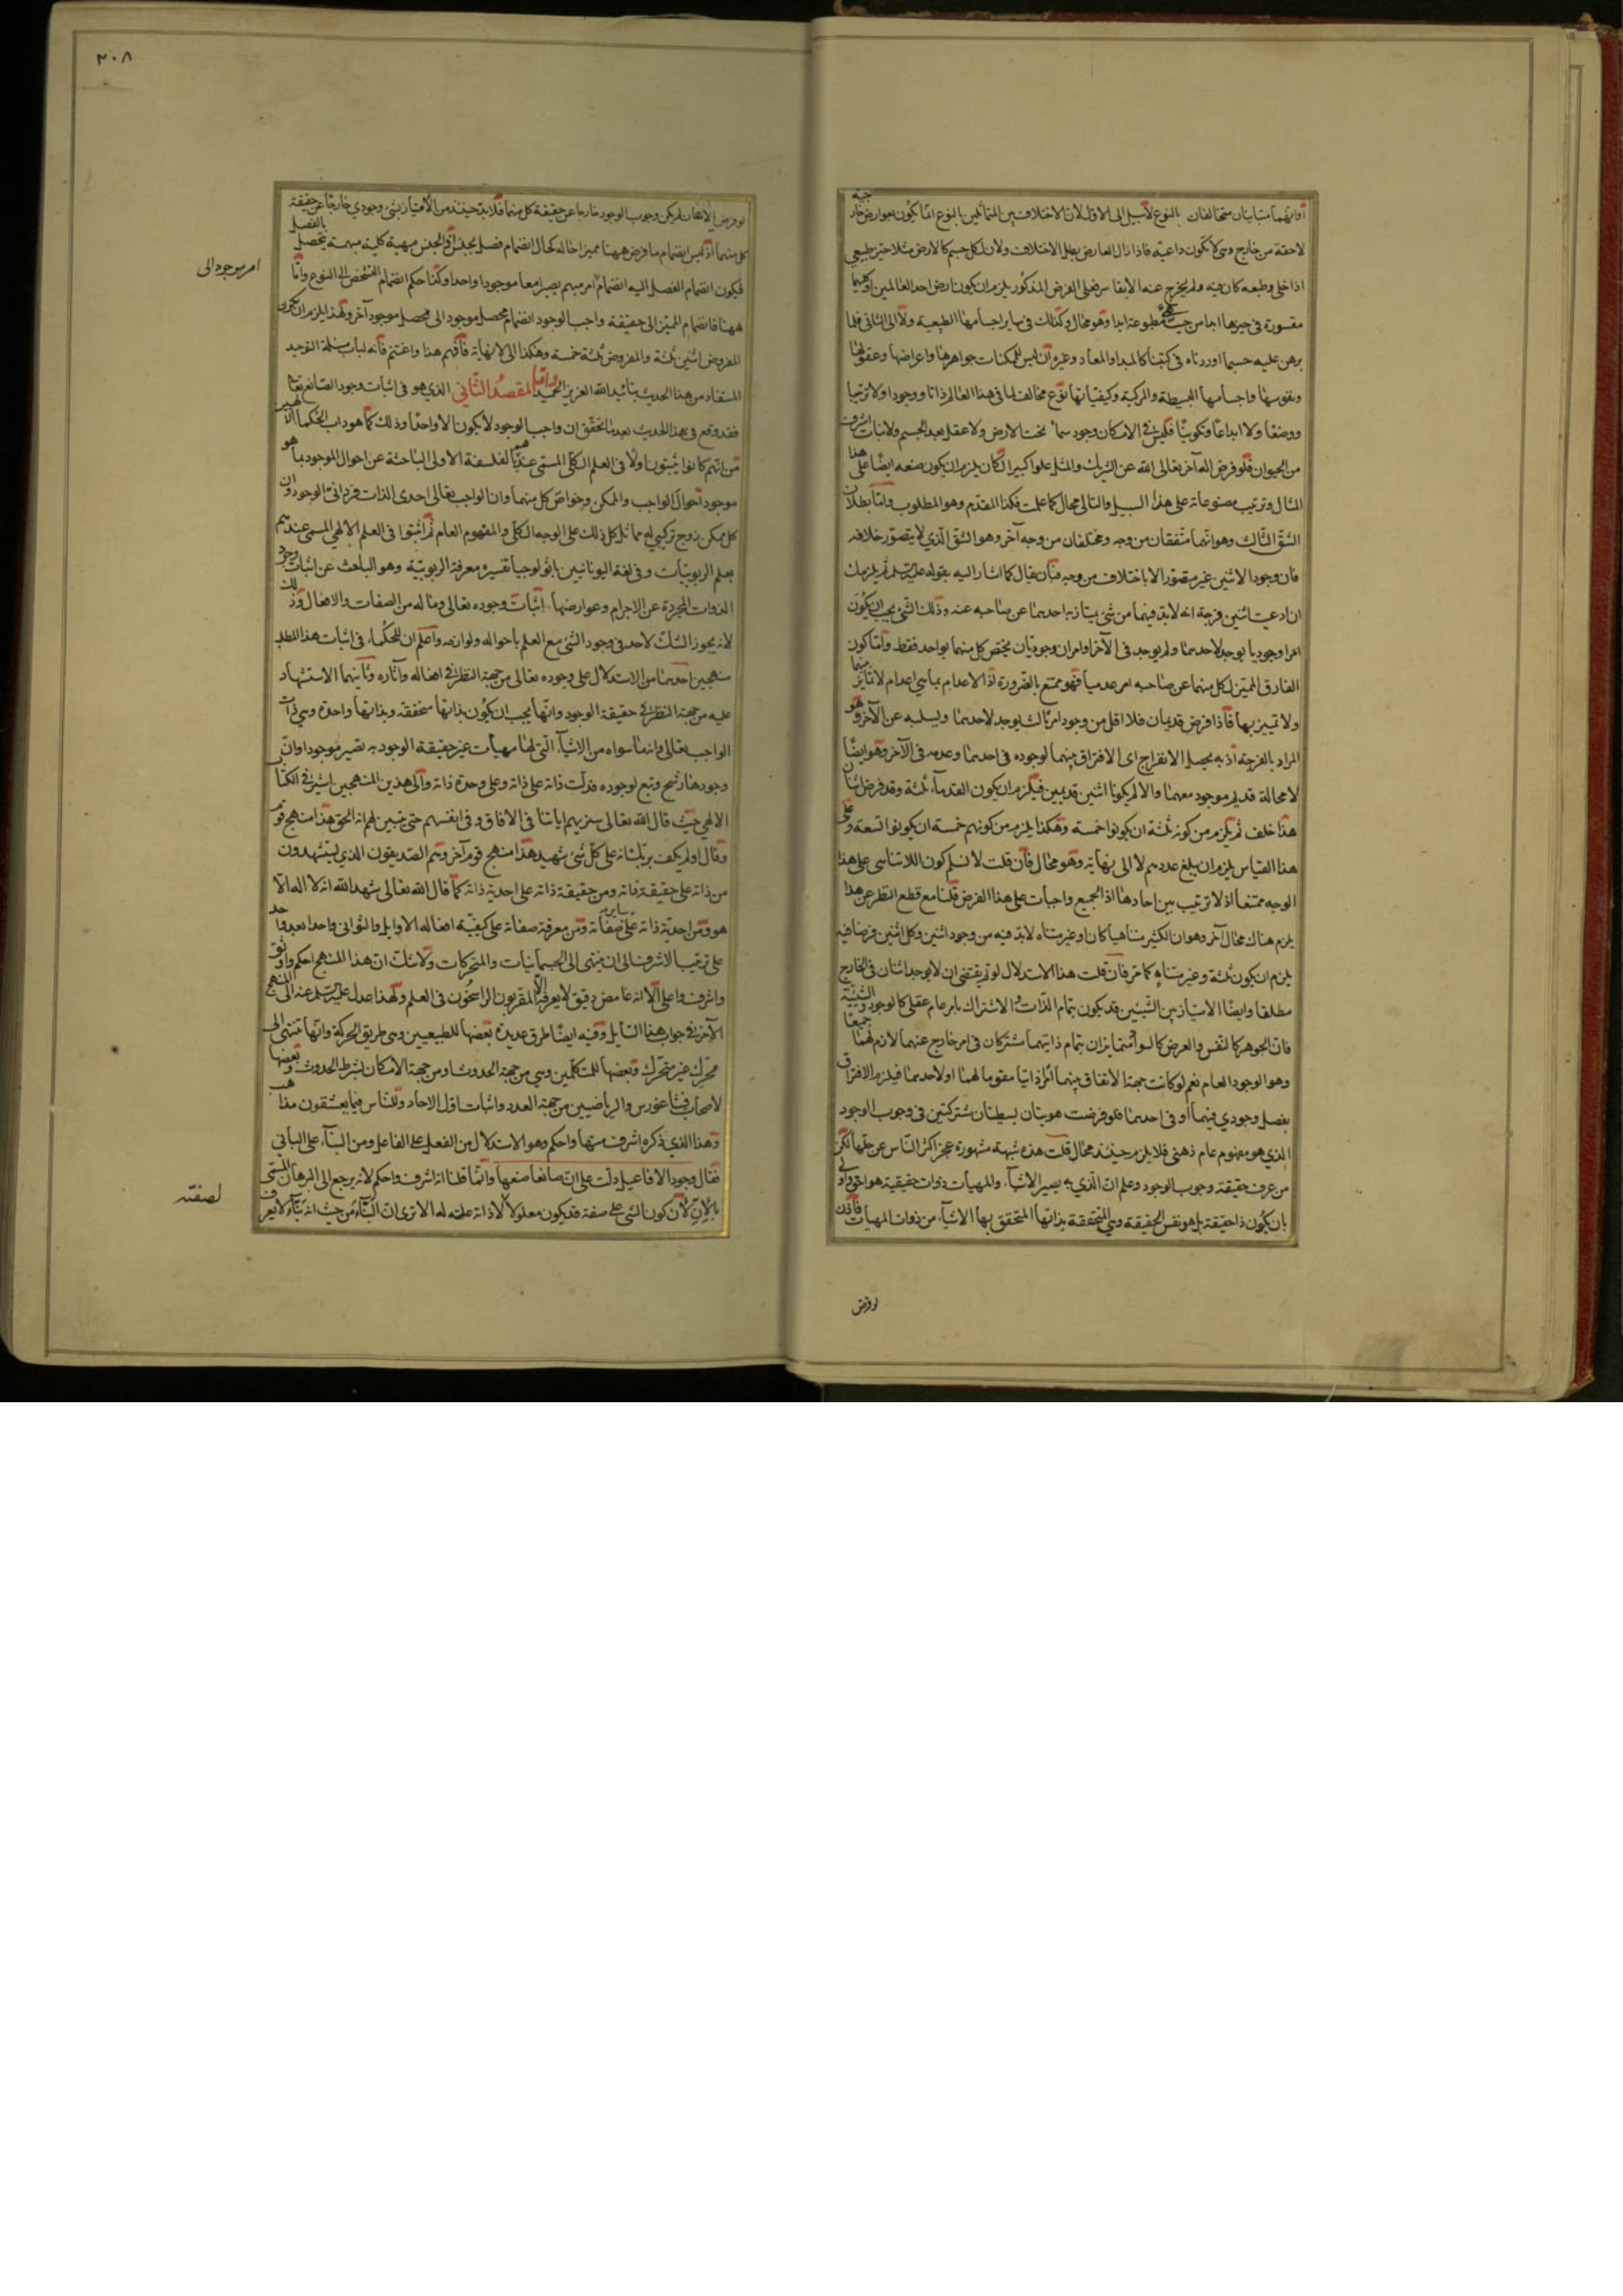 او انهما متباينان متخالفان بالنوع لا سبيل الى الاول لان الاختلاف بين المتماثلين بالنوع انما يكون بعوارض خارجية
لاحقة من خارج وهى لا تكون داعية فاذا زال العارض بطل الاختلاف ولان لكل جسم كالارض مثلا حيز طبيعي
اذا خلى وطبعه كان فيه ولم يخرج عنه الا بقاسر فعلى الفرض المذكور يلزم ان يكون ارض احد العالمين او كليهما
مقسورة فى حيزها ابدا من حيث هى مطبوعة ابدا وهو محال وكذلك فى ساير اجسامها الطبيعية ولا الى الثانى فلما
برهن عليه حسبما اوردناه فى كتبنا كالمبدا والمعاد وغيره ان ليس للممكنات جواهرها واعراضها وعقولها
ونفوسها واجسامها البسيطة والمركبة وكيفياتها نوع مخالف لما فى هذا العالم ذاتا ووجودا ولا ترتيبا
ووضعا ولا ابداعا وتكوينا فليس فى الامكان وجود سماء تحت الارض ولا عقل بعد الجسم ولا نبات اشرف
من الحيوان فلو فرض اله آخر تعالى الله عن الشريك والمثل علوا كبيرا لكان يلزم ان يكون صنعه ايضا على هذا
المثال وترتيب مصنوعاته على هذا السبيل والتالى محال كما علمت فكذا المقدم وهو المطلوب واما بطلان
الشق الثالث وهو انهما متفقان من وجه ومختلفان من وجه آخر وهو الشق الذي لا يتصور خلافه
فان وجود الاثنين غير متصور الا باختلاف من وجه فبان يقال كما اشار اليه بقوله عليه السلم ثم يلزمك
ان ادعيت اثنين فرجة انه لا بد فيهما من شئ يمتاز به احدهما عن صاحبه عنه وذلك الشئ يجب ان يكون
امرا وجوديا يوجد لاحدهما ولم يوجد فى الآخر او امران وجوديان يختص كل منهما بواحد فقط واما كون
الفارق المميز لكل منهما عن صاحبه امر عدميا فهو ممتنع بالضرورة اذ الاعدام بما هى اعدام لا تمايز منها
ولا تمييز بها فاذا فرض قديمان فلا اقل من وجود امر ثالث يوجد لاحدهما ويسلبه عن الآخر وهو
المراد بالفرجة اذ به يحصل الانفراج اى الافتراق بينهما لوجوده فى احدهما وعدمه فى الآخر وهو ايضا
لا محالة قديم موجود معهما والا لم يكونا اثنين قديمين فيلزم ان يكون القدماء ثلثة وقد فرض اثنان
هذا خلف ثم يلزم من كونهم ثلثة ان يكونوا خمسة وهكذا يلزم من كونهم خمسة ان يكونوا تسعة وعلى
هذا القياس يلزم ان يبلغ عددهم لا الى نهاية وهو محال فان قلت لا نسلم كون اللاتناهى على هذا
الوجه ممتنعا اذ لا ترتيب بين احادها اذ الجميع واجبات على هذا الفرض قلنا مع قطع النظر عن هذا
يلزم هناك محال آخر وهو ان الكثير متناهيا كان او غير متناه لا بد فيه من وجود اثنين وكل اثنين فرضا فيه
يلزم ان يكون ثلثة وغير متناه كما مر فان قلت هذا الاستدلال لو تم يقتضى ان لا يوجد اثنان فى الخارج
مطلقا وايضا الامتياز بين الشيئين قد يكون بتمام الذات والاشتراك بامر عام عقلى كالوجود والشيئية
فان الجوهر كالنفس والعرض كالسواد متمايزان بتمام ذاتيهما مشتركان فى امر خارج عنهما لازم لهما جميعا
وهو الوجود العام نعم لو كانت جهة الاتفاق بينهما امرا ذاتيا مقوما لهما او لاحدهما فيلزم الافتراق
بفصل وجودي فيهما او فى احدهما فلو فرضت هويتان بسيطتان مشتركتين فى وجوب الوجود
الذي هو مفهوم عام ذهنى فلا يلزم حينئذ محال قلت هذه شبهة مشهورة عجز اكثر الناس عن حلها لكن
من عرف حقيقة وجوب الوجود وعلم ان الذي به يصير الاشياء والمهيات ذوات حقيقية هو احق واولى
بان يكون ذا حقيقة بل هو نفس الحقيقة وهى المتحققة بذاتها المتحقق بها الاشياء من ذوات المهيات فاذن
لو فرض
٣٠٨
لو فرض الاثنان لم يكن وجوب الوجود خارجا عن حقيقة كل منهما فلا بد حينئذ من الامتياز بشئ وجودي خارجا عن حقيقة
كل منهما اذ ليس انضمام ما فرض ههنا مميزا حاله كحال انضمام فصل بجنس اذ الجنس مهية كلية مبهمة يتحصل بالفصل
فيكون انضمام الفصل اليه انضمام امر مبهم يصير معا موجودا واحدا وكذا حكم انضمام التشخص الى النوع واما
امر موجود الى
ههنا فانضمام المميز الى حقيقة واجب الوجود انضمام محصل موجود الى محصل موجود آخر ولهذا يلزم ان يكون
المفروض اثنين ثلثة والمفروض ثلثة خمسة وهكذا الى لا نهاية فافهم هذا واغتنم فانه لباب مسئلة التوحيد
المستفاد من هذا الحديث بتائيد الله العزيز الحميد واما المقصد الثاني الذي هو فى اثبات وجود الصانع تعالى
فقد وقع فى هذا الحديث بعد ما تحقق ان واجب الوجود لا يكون الا واحدا وذلك كما هو داب الحكماء الالهيين
من انهم كانوا يثبتون اولا فى العلم الكلى المسمى عندهم بالفلسفة الاولى الباحثة عن احوال الموجود بما هو
موجود احوال الواجب والممكن وخواص كل منهما وان الواجب تعالى احدى الذات فردانى الوجود وان
كل ممكن زوج تركيبي له مماثل كل ذلك على الوجه الكلى والمفهوم العام ثم اثبتوا فى العلم الالهي المسمى عندهم
بعلم الربوبيات وفى لغة اليونانيين باثولوجيا تفسيره معرفة الربوبية وهو الباحث عن اثبات وجود
الذوات المجردة عن الاجرام وعوارضها اثبات وجوده تعالى وما له من الصفات والافعال وذلك
لانه يجوز الشك لاحد فى وجود الشئ مع العلم باحواله ولوازمه واعلم ان للحكماء فى اثبات هذا المطلب
منهجين احدهما من الاستدلال على وجوده تعالى من جهة النظر فى افعاله وآثاره وثانيهما الاستشهاد
عليه من جهة النظر فى حقيقة الوجود وانها يجب ان يكون بذاتها متحققة وبذاتها واحدة وهى ذات
الواجب تعالى وان ما سواه من الاشياء التى لها مهيات غير حقيقة الوجود به تصير موجودا وان
وجودها رشح وتبع لوجوده فدلت ذاته على ذاته وعلى وحدة ذاته والى هذين المنهجين اشير فى الكتاب
الالهي حيث قال الله تعالى سنريهم اياتنا فى الافاق وفى انفسهم حتى يتبين لهم انه الحق هذا منهج قوم
وقال اولم يكف بربك انه على كل شئ شهيد هذا منهج قوم آخر وهم الصديقون الذي يستشهدون
من ذاته على حقيقة ذاته ومن حقيقة ذاته على احدية ذاته كما قال الله تعالى شهد الله انه لا اله الا
هو ومن احدية ذاته على ساير صفاته ومن معرفة صفاته على كيفية افعاله الاوايل والثوانى واحدا بعد واحد
على ترتيب الاشرف الى ان ينتهى الى الجسمانيات والمتحركات ولا شك ان هذا المنهج احكم واوثق
واشرف واعلى الا انه غامض دقيق لا يعرفه الا المقربون الراسخون فى العلم ولهذا عدل عليه السلم عنه الى المنهج
الآخر فى جواب هذا السايل وفيه ايضا طرق عديدة بعضها للطبيعيين وهى طريق الحركة وانها تنتهى الى
محرك غير متحرك وبعضها للمتكلمين وهى من جهة الحدوث او من جهة الامكان بشرط الحدوث وبعضها
لاصحاب فيثاغورس والرياضيين من جهة العدد واثبات اول الاحاد وللناس فيما يعشقون مذاهب
وهذا الذي ذكره اشرف منها واحكم وهو الاستدلال من الفعل على الفاعل ومن البناء على البانى
فقال وجود الافاعيل دلت على ان صانعا صنعها وانما قلنا انه اشرف واحكم لانه يرجع الى البرهان المسمى
بالان لان كون الشى على صفة قد يكون معلولا لا ذاته علته له الا ترى ان البناء من حيث انه بناء لا يعرف
لصفته